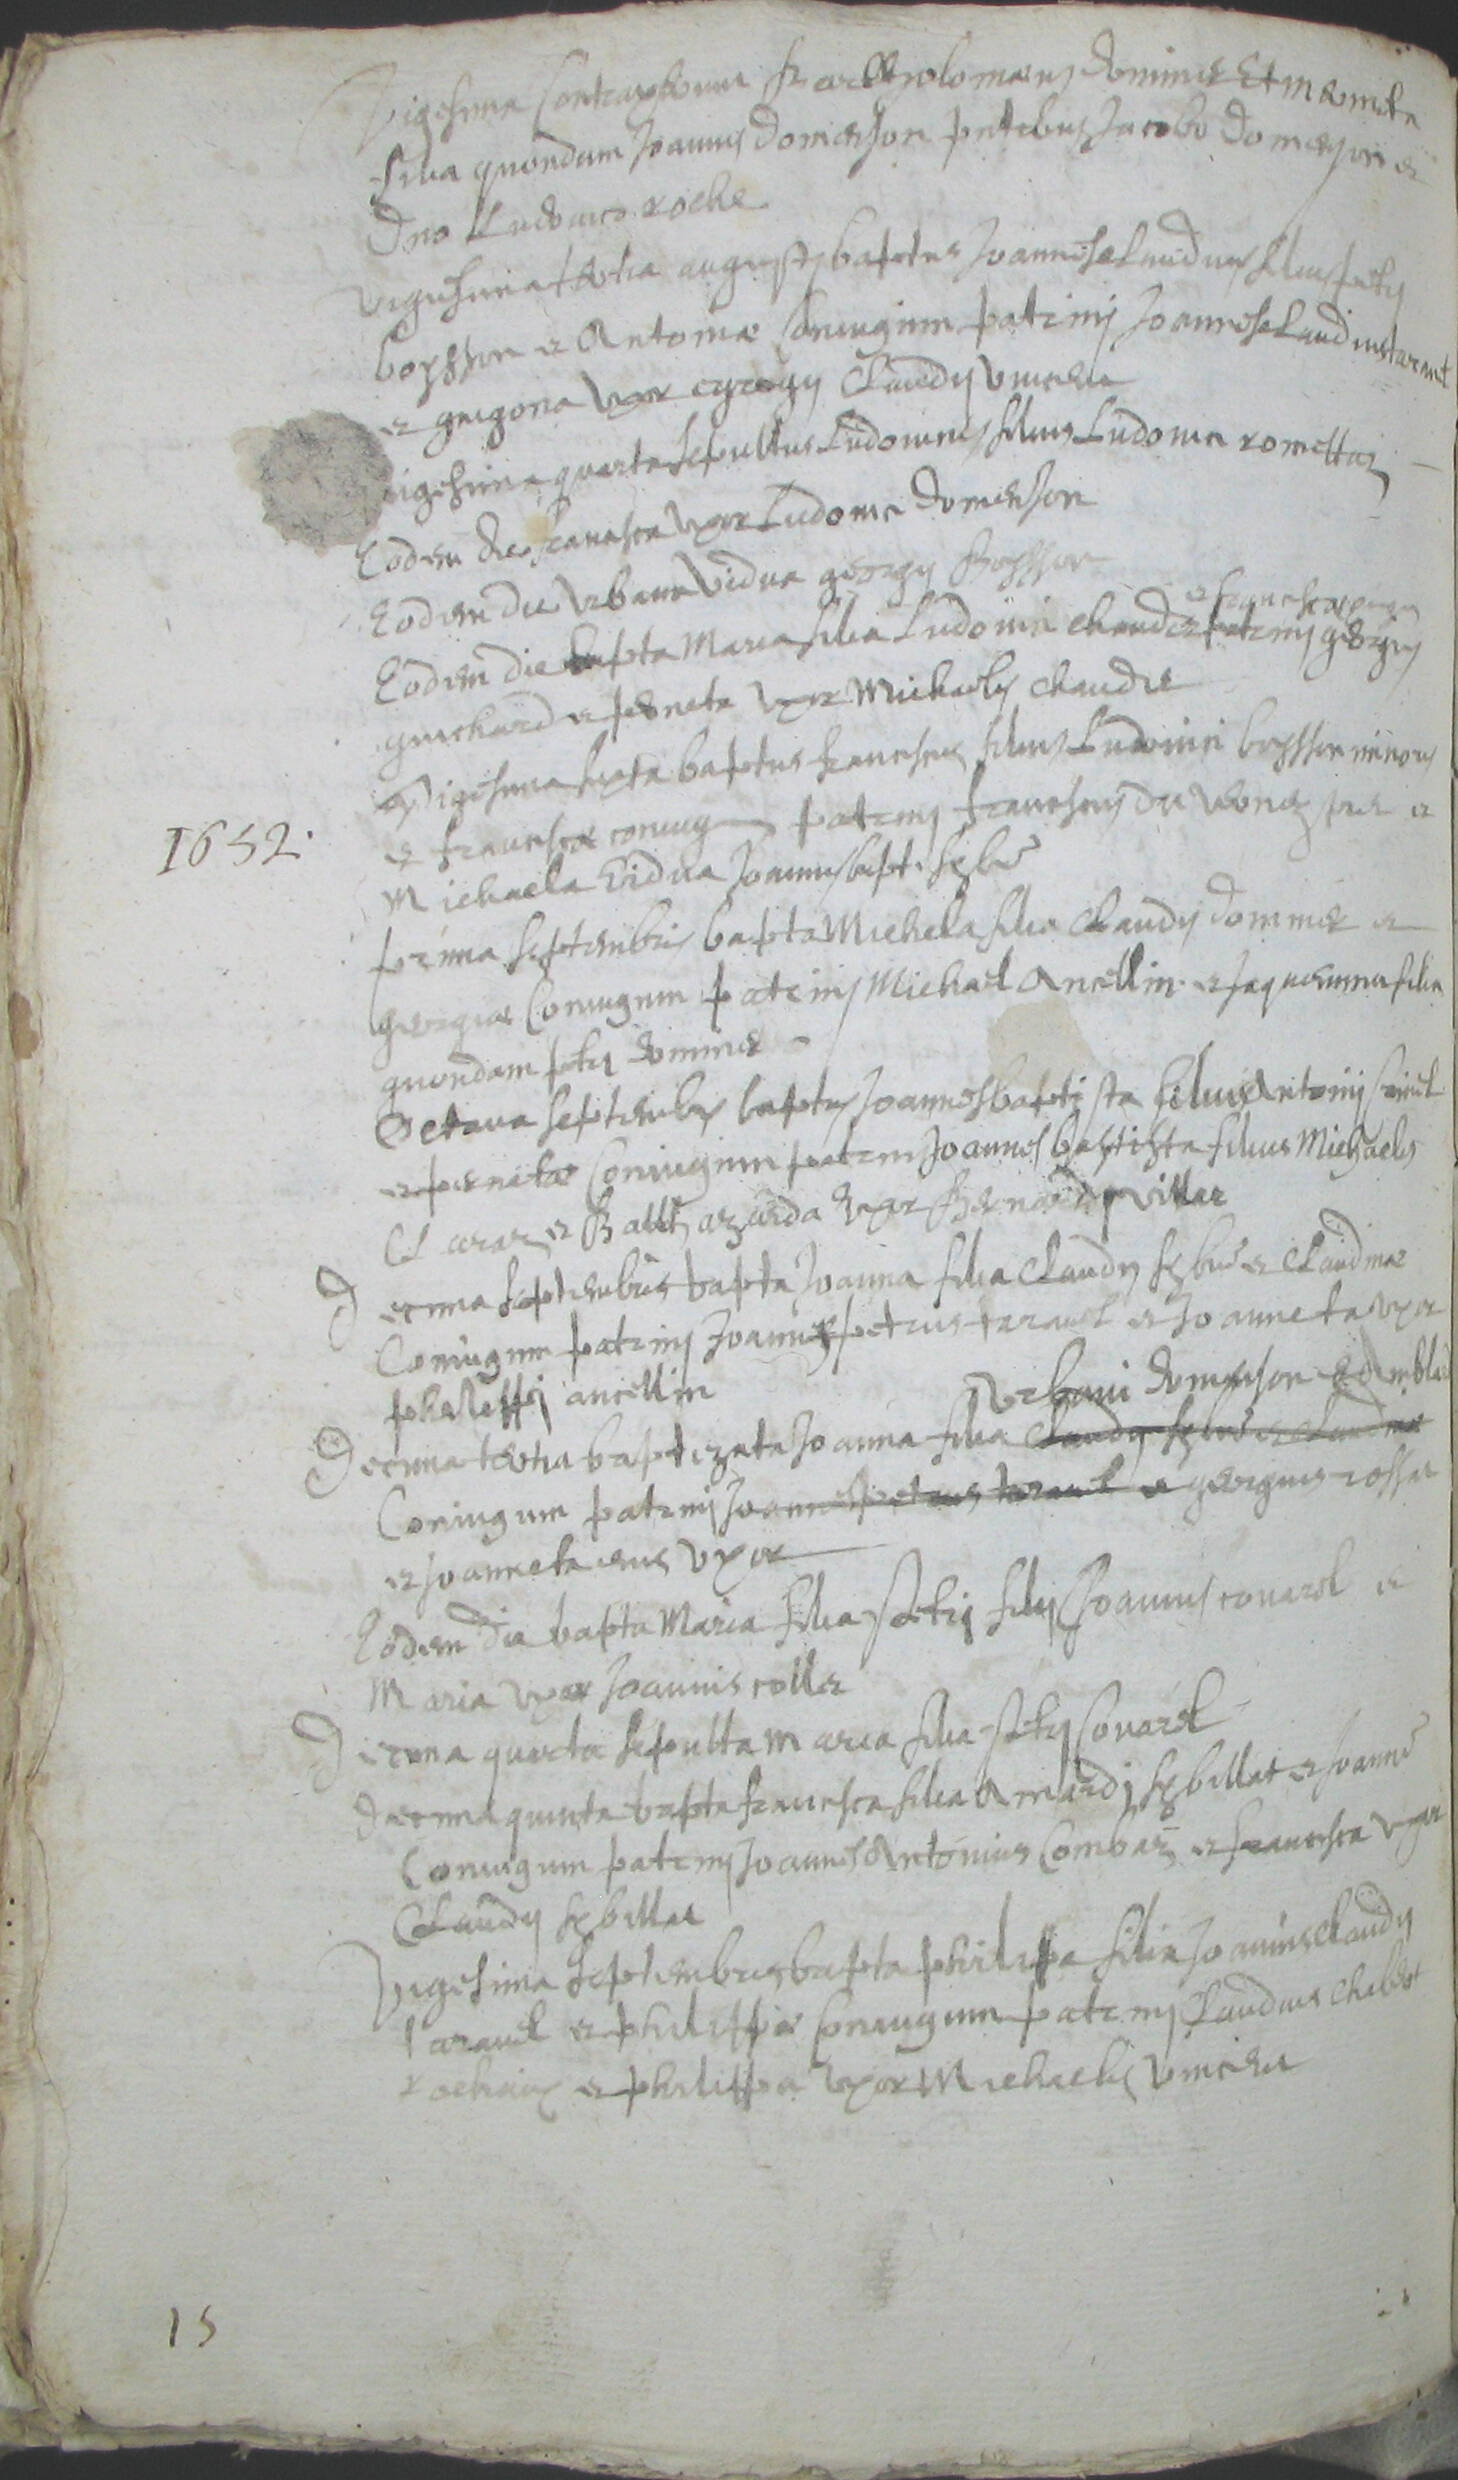 Vigesima Contraxerunt Bartholomeus Dominic Et
filia quondam Joannis Domenson pntibus Jacobo Domenson et
Dno Ludovico roche
vigesima tertia augusti baptus Joannes Claudius filius petri
boysson et Antoniæ Coniugum patrinij Joannes Claudius taravel
et guigona uxor egregij Claudij
vigesima quarta sepultus Ludovicus filius Ludovici
Eodem die uxor Ludovici Domenson
Eodem die urbana vidua georgij Boysson
et francisca coniugum
Eodem die bapta Maria filia Ludovici chaudet patrinij georgius
guichard et perneta uxor Michaelis chaudet
Vigesima sexta baptus franciscus filius Ludovici boysson minoris
1652.
et francisca coniug patrinij franciscus et
Michaela vidua Joannis bapt. sybué
prima septembris bapta Michela filia Claudij dominic et
georgiæ Coniugum patrinij Michael Ancellin et Jaquemina filia
quondam petri dominic
Octava septembris baptus Joannes baptista filius Antonij
et pernetæ Coniugum patrini Joannes baptista filius Michaelis
Claraz et Balthazarda uxor Bernardi villar
Decima septembris bapta Joanna filia Claudij sybué et Claudinæ
Coniugum patrinij Joannes petrus taravel et Joanneta uxor
philippi ancellin
Urbani Domenson
Decima tertia baptizata Joanna filia Claudij sybué et Claudinæ
Coniugum patrinij Joannes petrus taravel et georgius
et Joanneta eius uxor
Eodem die bapta Maria filia petri filij Joannis covarel et
Maria uxor Joannis collet
Decima quarta sepulta Maria filia petri covarel
Decima quinta bapta francisca filia Amardi sybillat et Joannæ
Coniugum patrinij Joannes Antonius Combaz et francisca uxor
Claudij sybillat
Vigesima septembris bapta philippa filia Joannis Claudij
taravel et philippæ Coniugum patrinij Claudius
rochaix et philippa uxor Michaelis
15